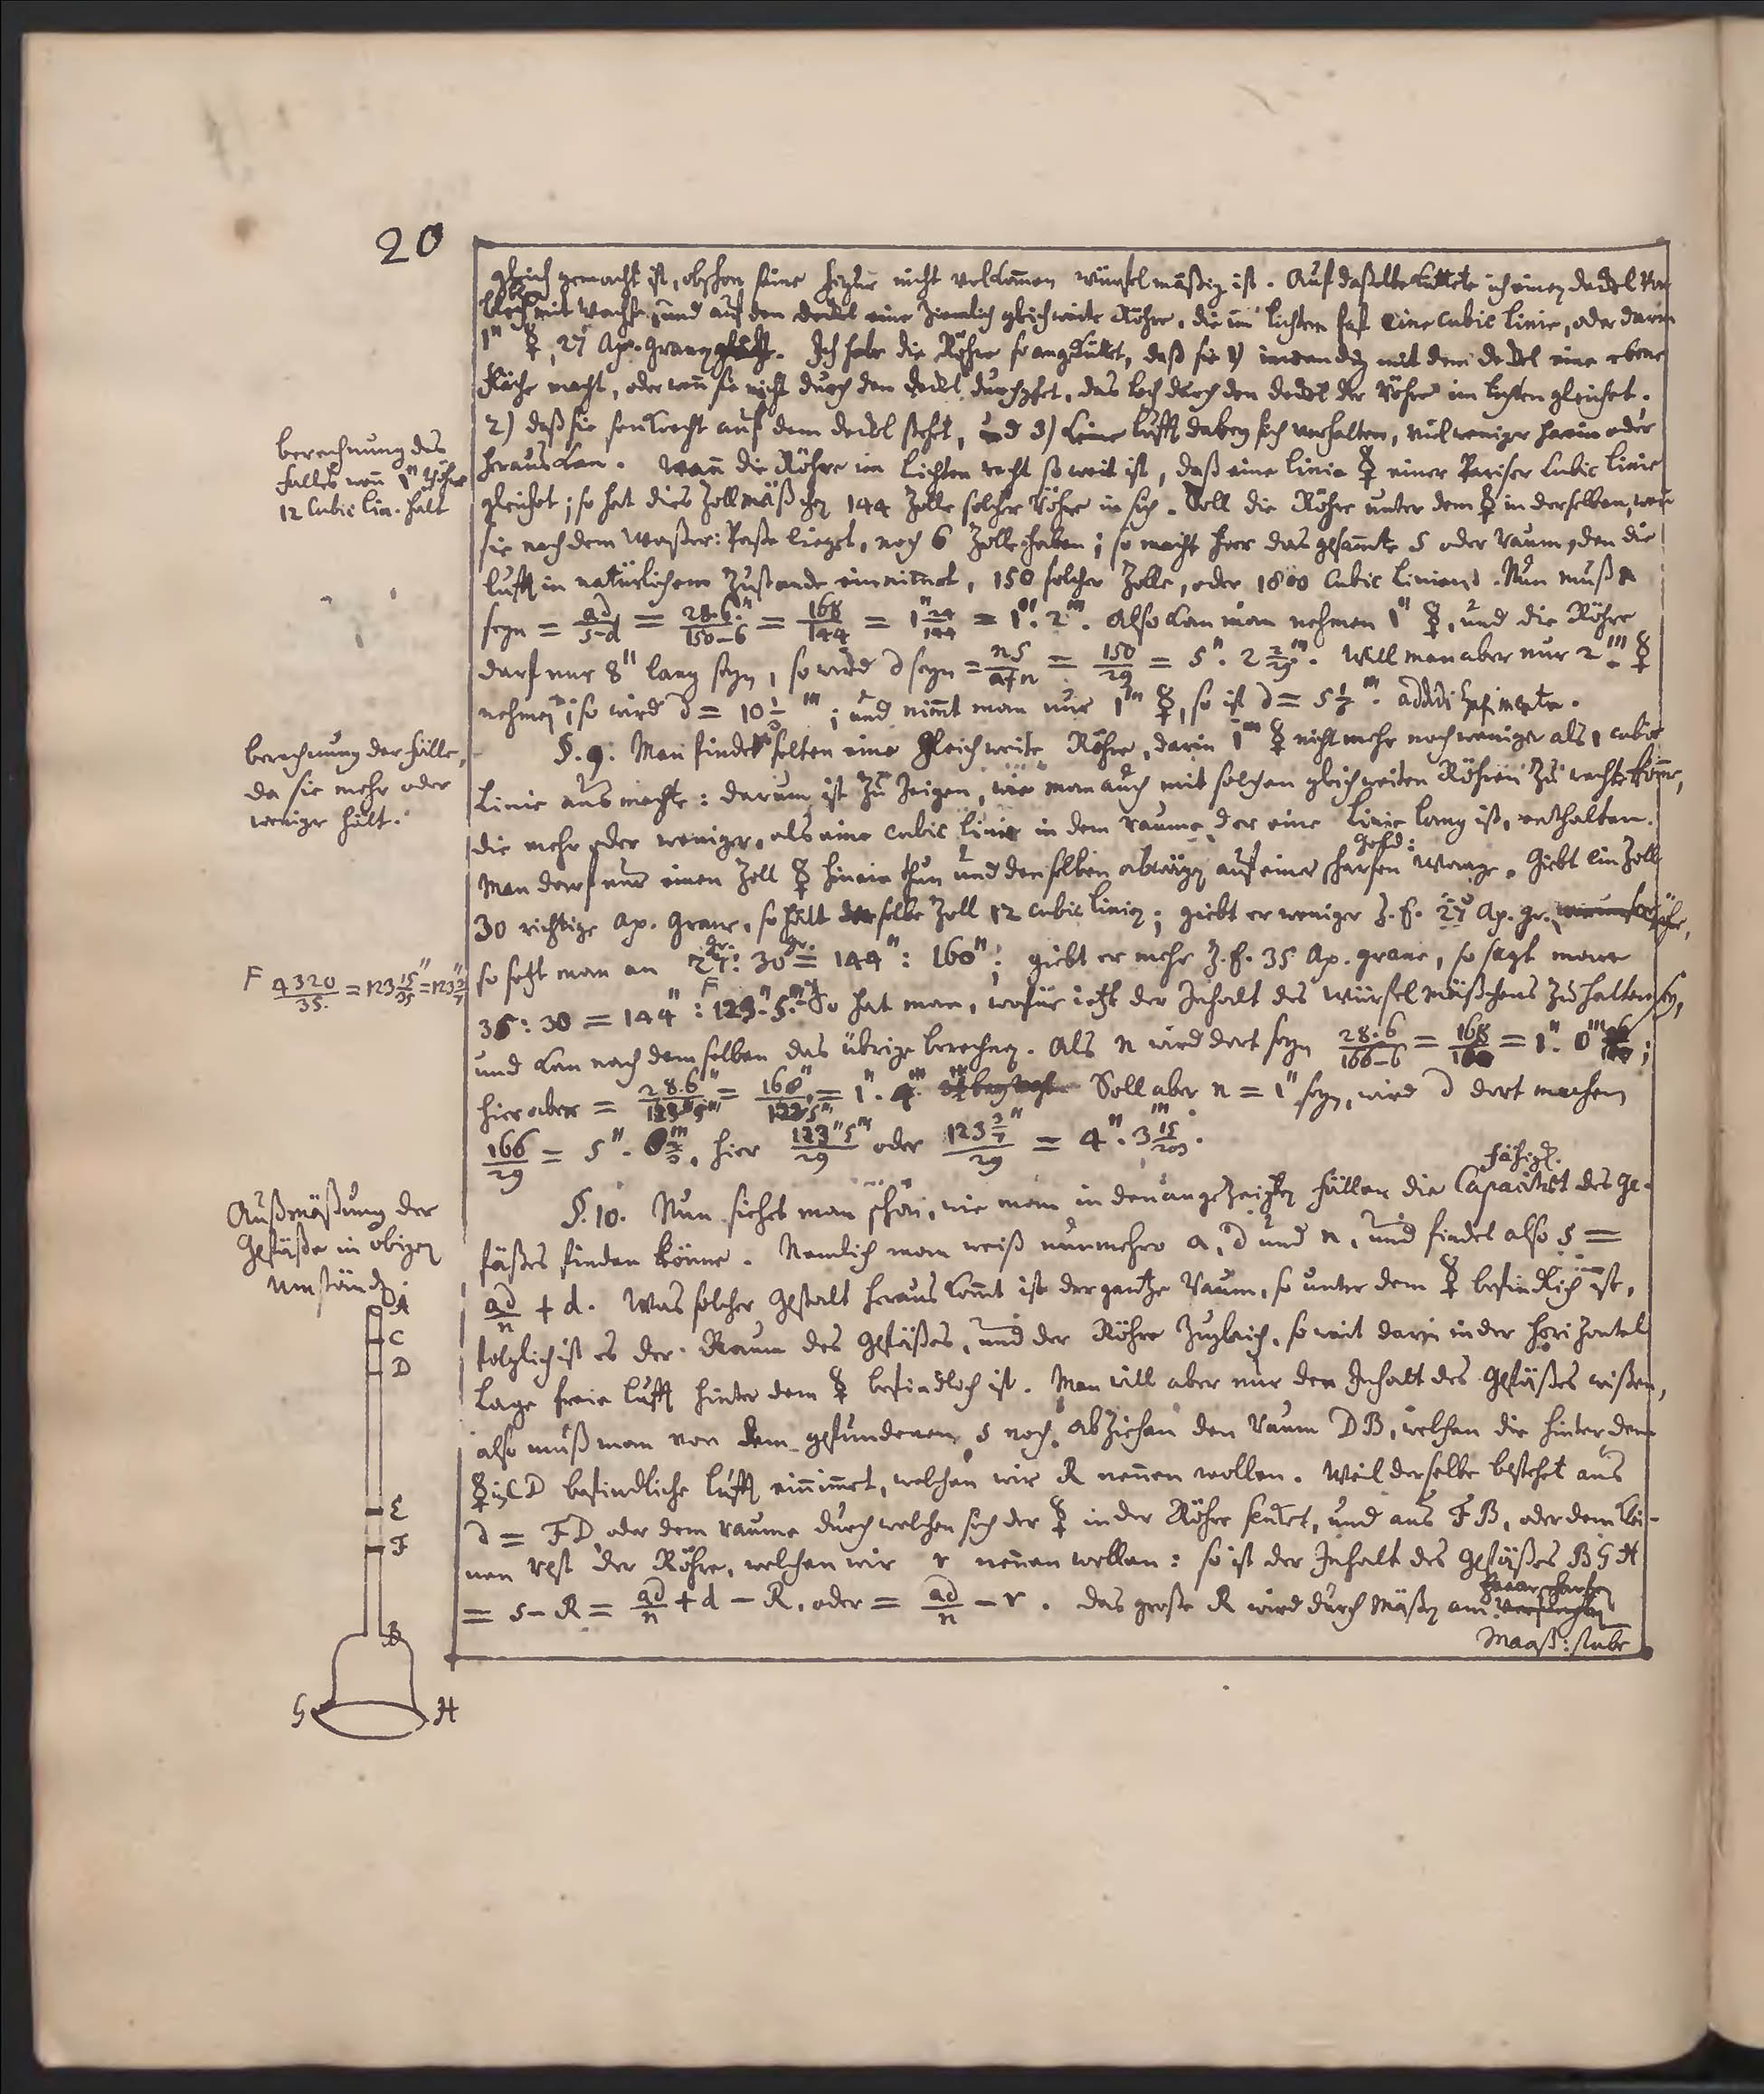 20
gleich gemacht ist, obschon seine Figur nicht vollkom̄en würfelmäßig ist. Auf daßelbe küttete ich einen deckel von
blech mit Wachse, und auf den deckel eine ziemlich gleichweite Röhre, die im lichten fast eine cubic linie, oder darin
1‴ ☿, 27 Ap. grane. Ich habe die Röhre so angeküttet, daß sie 1) inwendig mit dem deckel eine ebene
Fläche macht, oder wen̄ sie nicht durch den deckel durchgehet, das loch durch den deckel der Röhre im lichten gleichet.
2) daß sie senkrecht auf dem deckel stehet, und 3) keine lufft dabey sich verhalten, viel weniger herein oder
heraus kan. Wan̄ die Röhre im lichten recht so weit ist, daß eine linie ☿ einer Pariser Cubic linie
gleichet; so hat dies Zollmäßchen 144 Zolle solcher Röhre in sich. Soll die Röhre unter dem ☿ in derselben, wen̄
sie nach dem Waßer: Paße lieget, noch 6 Zolle haben; so macht hier das gesam̄te s oder raum, den die
lufft in natürlichem Zustande ein̄im̄et, 150 solcher Zolle, oder 1800 Cubic linien. Nun muß n
seyn = ad/s-d = 28.6.″/150-6 = 168/144 = 1″ 24/144 = 1″. 2‴. Also kan man nehmen 1″ ☿, und die Röhre
darf nur 8″ lang seyn, so wird d seyn = ns/a+n = 150/29 = 5″. 2 2/29‴. Will man aber nur 2‴ ☿
nehmen; so wird d = 10 ‴; und nim̄t man nur 1‴ ☿, so ist d = 5 ‴.
§. 9. Man findet selten eine gleichweite Röhre, darin 1‴ ☿ nicht mehr noch weniger als 1 cubic
Linie ausmachte: darum ist zu zeigen, wie man auch mit solchen gleichweiten Röhren zu rechte kom̄e,
die mehr oder weniger, als eine cubic linie in dem raume, der eine Linie lang ist, enthalten.
Man darf nur einen Zoll ☿ hinein thun und denselben abwägen auf einer scharfen Waage. Giebt ein Zoll
30 richtige Ap. grane, so hält derselbe Zoll 12 cubic linien; giebt er weniger z.E. 27 Ap. gr.
so setzt man an 27 gr.: 30 gr. = 144″: 160″; giebt er mehr z.E. 35 Ap. grane, so sagt man
35: 30 = 144″: 123″. 5‴. So hat man, wofür jetzt der Inhalt des Würfelmäßchens zu halten sey,
und kan nach demselben das übrige berechnen. Als n wird dort seyn 28.6/166-6 = 168/160 = 1″. 0‴;
hier aber = 28.6″/123″5‴ = 168″/123″5‴ = 1″. 4‴. Soll aber n = 1″ seyn, wird d dort machen
166/29 = 5″. 8‴, hier 123″5‴/29 oder 123 3/7″/29 = 4″. 3 15/203‴.
§. 10. Nun siehet man schon, wie man in den angezeigten Fällen die Capacitet des Ge-
fäßes finden könne. Nemlich man weiß nunmehro a, d und n, und findet also s =
ad/n + d. Was solcher Gestalt heraus kom̄t ist der gantze Raum, so unter dem ☿ befindlich ist,
folglich ist es der Raum des Gefäßes, und der Röhre zugleich, so weit darin in der horizontal
Lage freie lufft hinter dem ☿ befindlich ist. Man will aber nur den Inhalt des Gefäßes wißen,
also muß man von dem gefundenen s noch abziehen den Raum DB, welchen die hinter dem
☿ in CD befindliche lufft ein̄im̄et, welchen wir R nen̄en wollen. Weil derselbe bestehet aus
d = FD, oder dem raume durch welchen sich der ☿ in der Röhre senket, und aus FB, oder dem klei-
nen rest der Röhre, welchen wir r nen̄en wollen: so ist der Inhalt des Gefäßes BGH
= s - R = ad/n + d - R, oder = ad/n - r. Das große R wird durch Mäßen am
Maaß: stabe
berechnung des
Falles wen̄ 1″ Röhre
12 Cubic Lin. hält
berechnung der Fälle,
da sie mehr oder
weniger hält.
F 4320/35. = 123 15/35″ = 123 3/7″
Außmäßung der
Gefäße in obigen
Umständen.
A
C
D
E
F
B
G
H